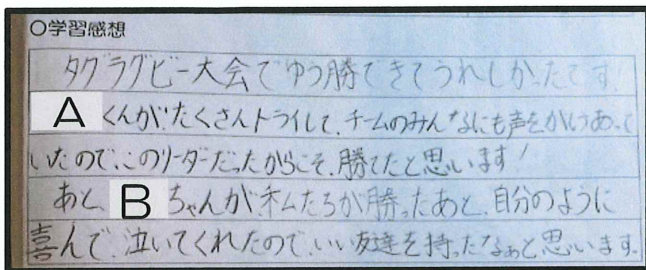 〇学習感想
タグラグビー大会でゆう勝できてうれしかったです!
Aくんが、たくさんトライして、チームのみんなにも声をかけあって
いたので、このリーダーだったからこそ、勝てたと思います!
あと、Bちゃんが、私たちが勝ったあと、自分のように
喜んで、泣いてくれたので、いい友達を持ったなぁと思います。